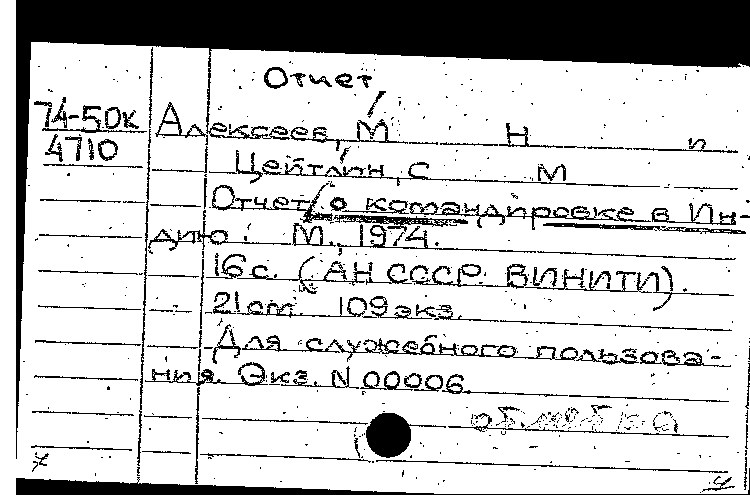 Отчет
74-50к Алексеев, М Н п
4710 Цейтлин, С М
Отчет о командировке в Ин-
дию. М., 1974.
16 с. (АН СССР. ВИНИТИ).
21 см. 109 экз.
Для служебного пользова-
ния. Экз. N 00006.